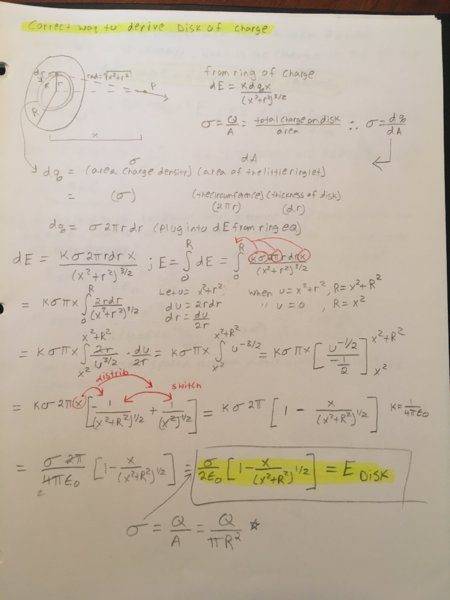 Correct way to derive Disk of charge
dq
R
r
rad=√x²+r²
P
x
from ring of charge
dE = Kdqx/(x²+r²)^3/2
σ = Q/A = total charge on disk/area ∴ σ = dq/dA
σ dA
dq = (area charge density) (area of the little ringlet)
= (σ) (the circumference) (thickness of disk)
(2πr) (dr)
dq = σ2πrdr (Plug into dE from ring eq)
dE = Kσ2πrdr x/(x²+r²)^3/2 ; E = ∫₀^R dE = ∫₀^R Kσ2πrdrx/(x²+r²)^3/2
= Kσπx ∫₀^R 2rdr/(x²+r²)^3/2 Let u = x²+r² when u = x²+r², R = x²+R²
du = 2rdr " u = 0, R = x²
dr = du/2r
= Kσπx ∫_x²^x²+R² 2r/u^3/2 · du/2r = Kσπx ∫_x²^x²+R² u^-3/2 = Kσπx [u^-1/2/-1/2]_x²^x²+R²
distrib switch
= Kσ2πx [-1/(x²+R²)^1/2 + 1/(x²)^1/2] = Kσ2π [1 - x/(x²+R²)^1/2] K = 1/4πε₀
= σ2π/4πε₀ [1 - x/(x²+R²)^1/2] = σ/2ε₀ [1 - x/(x²+R²)^1/2] = E DISK
2
σ = Q/A = Q/πR² ☆